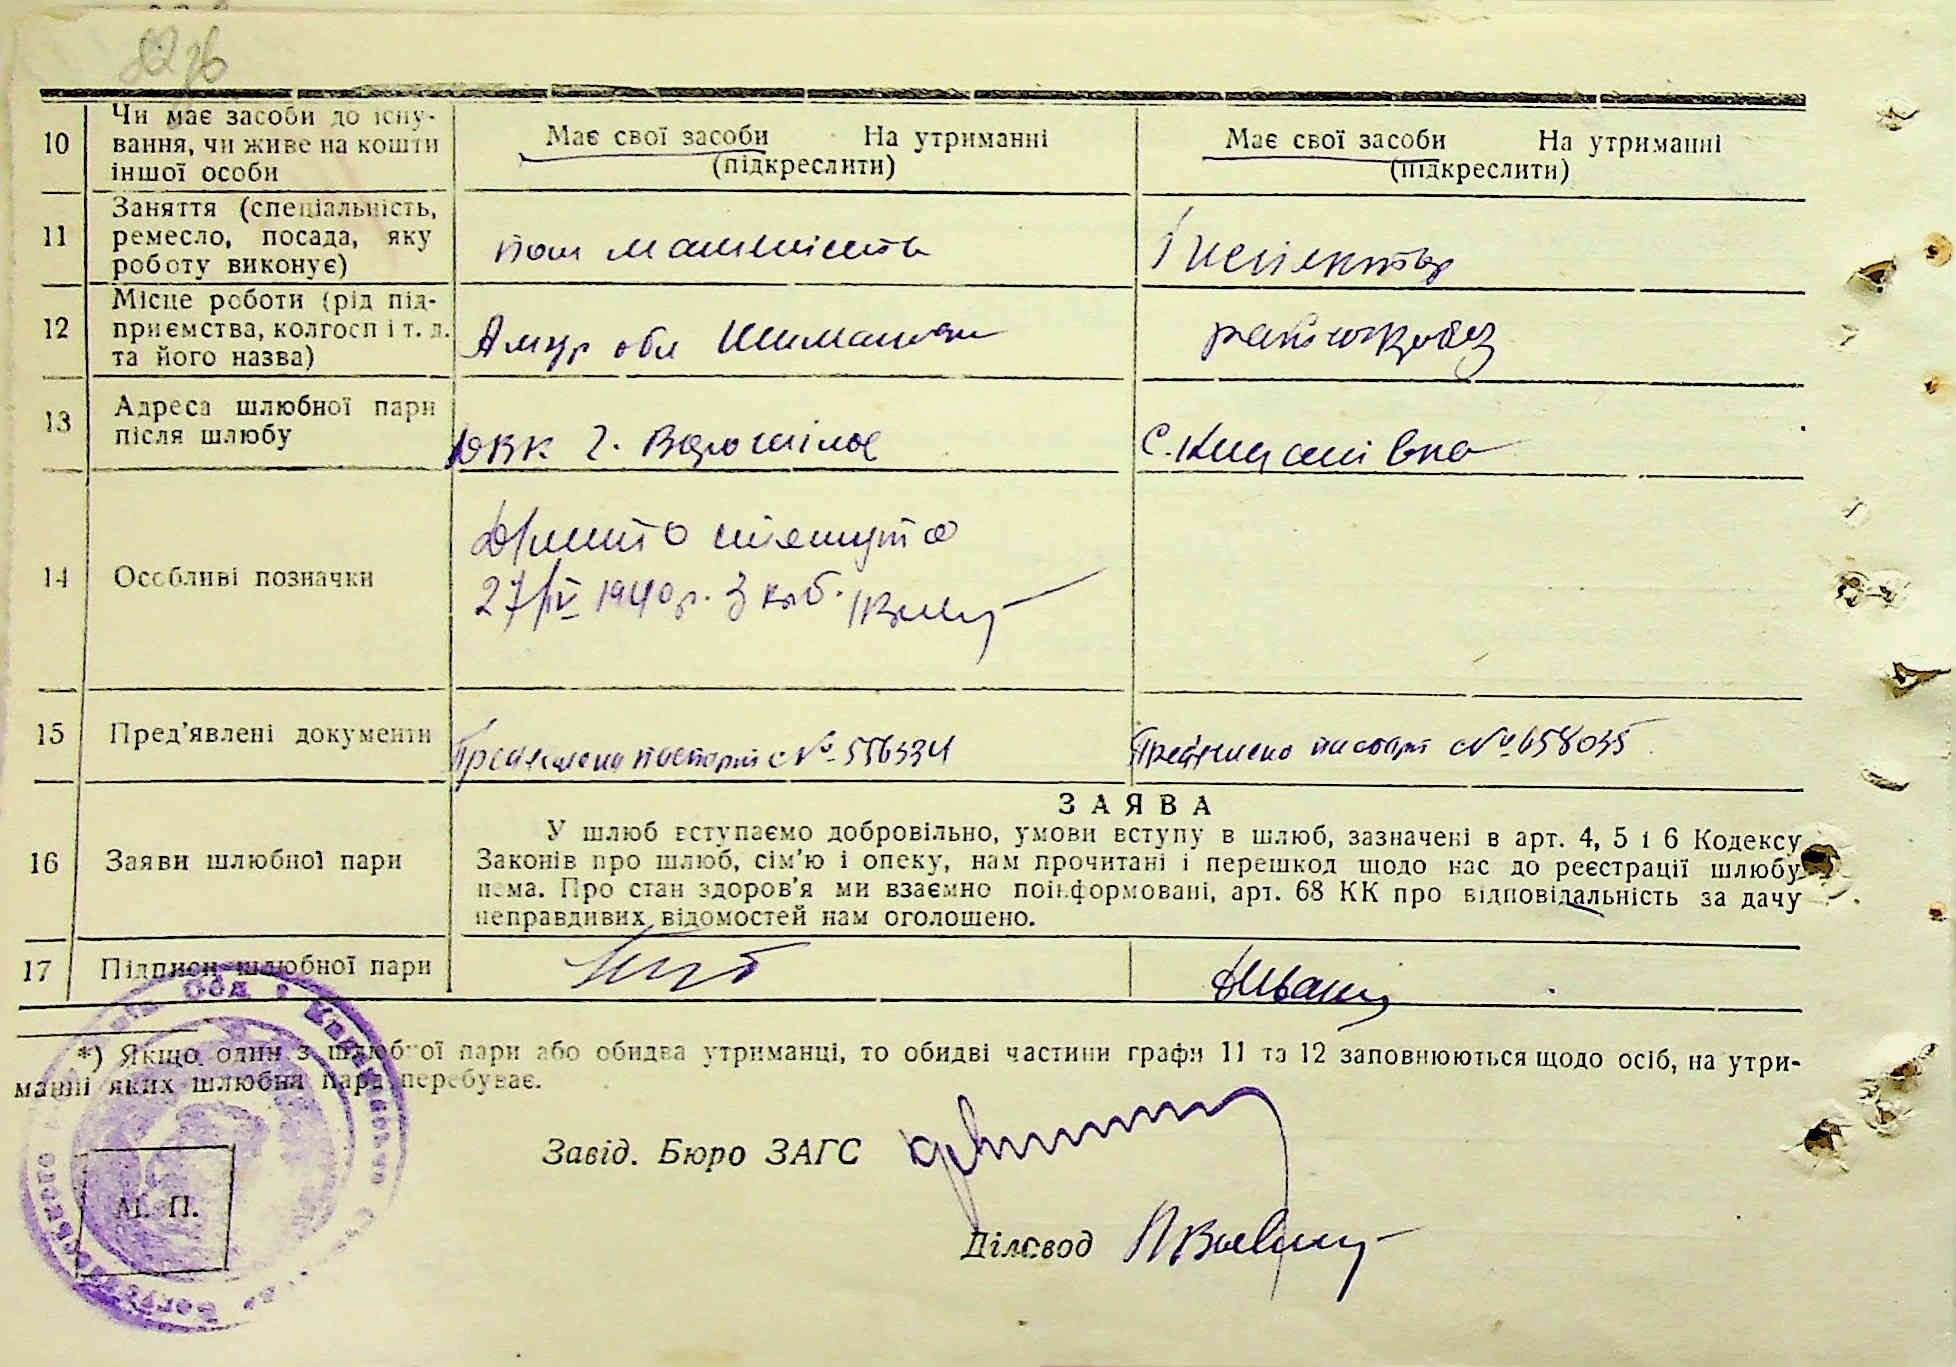 10
Чи має засоби до існу-
вання, чи живе на кошти
іншої особи
Має свої засоби На утриманні
(підкреслити)
Має свої засоби На утриманні
(підкреслити)
11
Заняття (спеціальність,
ремесло, посада, яку
роботу виконує)
пом машиніста
Інспектор
12
Місце роботи (рід під-
приємства, колгосп і т. д.
та його назва)
Амур обл
13
Адреса шлюбної пари
після шлюбу
ДВК г. Ворошілов
С.
14
Особливі позначки
27/IV 1940р. 3 крб.
15
Пред'явлені документи
паспорт №556334
паспорт №658035
16
Заяви шлюбної пари
ЗАЯВА
У шлюб вступаємо добровільно, умови вступу в шлюб, зазначені в арт. 4, 5 і 6 Кодексу
Законів про шлюб, сім'ю і опеку, нам прочитані і перешкод щодо нас до реєстрації шлюбу
нема. Про стан здоров'я ми взаємно поінформовані, арт. 68 КК про відповідальність за дачу
неправдивих відомостей нам оголошено.
17
Підписи шлюбної пари
*) Якщо один з шлюбної пари або обидва утриманці, то обидві частини графи 11 та 12 заповнюються щодо осіб, на утри-
манні яких шлюбна пара перебуває.
Завід. Бюро ЗАГС
М. П.
Діловод